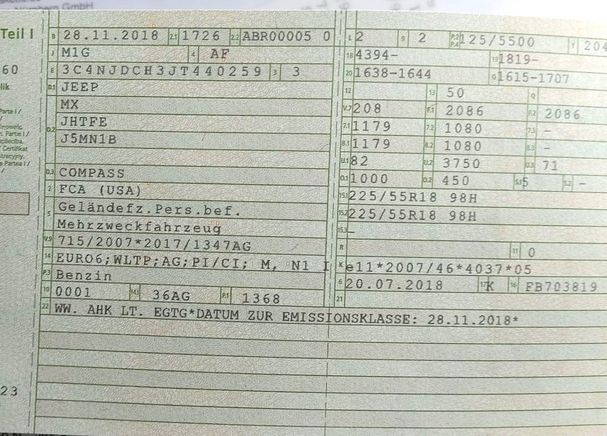 Teil I
B 28.11.2018 2.1 1726 2.2 ABR00005 0
J M1G 4 AF
E 3C4NJDCH3JT440259 3 3
D.1 JEEP
MX
D.2 JHTFE
J5MN1B
D.3 COMPASS
2 FCA (USA)
5 Geländefz.Pers.bef.
Mehrzweckfahrzeug
V.9 715/2007*2017/1347AG
14 EURO6;WLTP;AG;PI/CI; M, N1 I
P.3 Benzin
10 0001 14.1 36AG P.1 1368
22 WW. AHK LT. EGTG*DATUM ZUR EMISSIONSKLASSE: 28.11.2018*
L 2 9 2 P.2 P.4 125/5500 T 204
18 4394- 19 1819-
20 1638-1644 1615-1707
12 13 50 Q
V.7 208 F.1 2086 F.2 2086
7.1 1179 7.2 1080 7.3 -
8.1 1179 8.2 1080 8.3 -
U.1 82 U.2 3750 U.3 71
O.1 1000 O.2 450 S.1 5 S.2 -
15.1 225/55R18 98H
15.2 225/55R18 98H
15.3 -
R 11 0
K e11*2007/46*4037*05
6 20.07.2018 17 K 16 FB703819
21
60
23